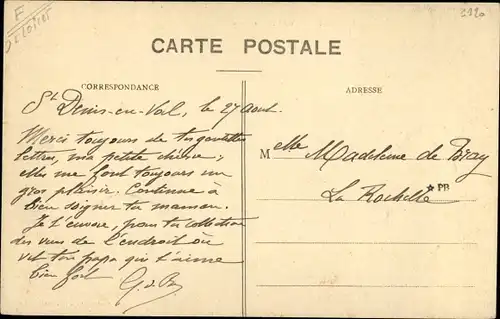 F
LOIRET
2120
CARTE POSTALE
CORRESPONDANCE
ADRESSE
St Denis-en-Val, le 27 Août.
Merci toujours de tes gentilles
lettres, ma petite chérie,
elles me font toujours un
gros plaisir. Continue à
bien soigner ta maman.
Je t'envoie, pour ta collection
des vues de l'endroit où
vit ton papa qui t'aime
bien fort
G de B
Melle Madeleine de Bray
La Rochelle
PB